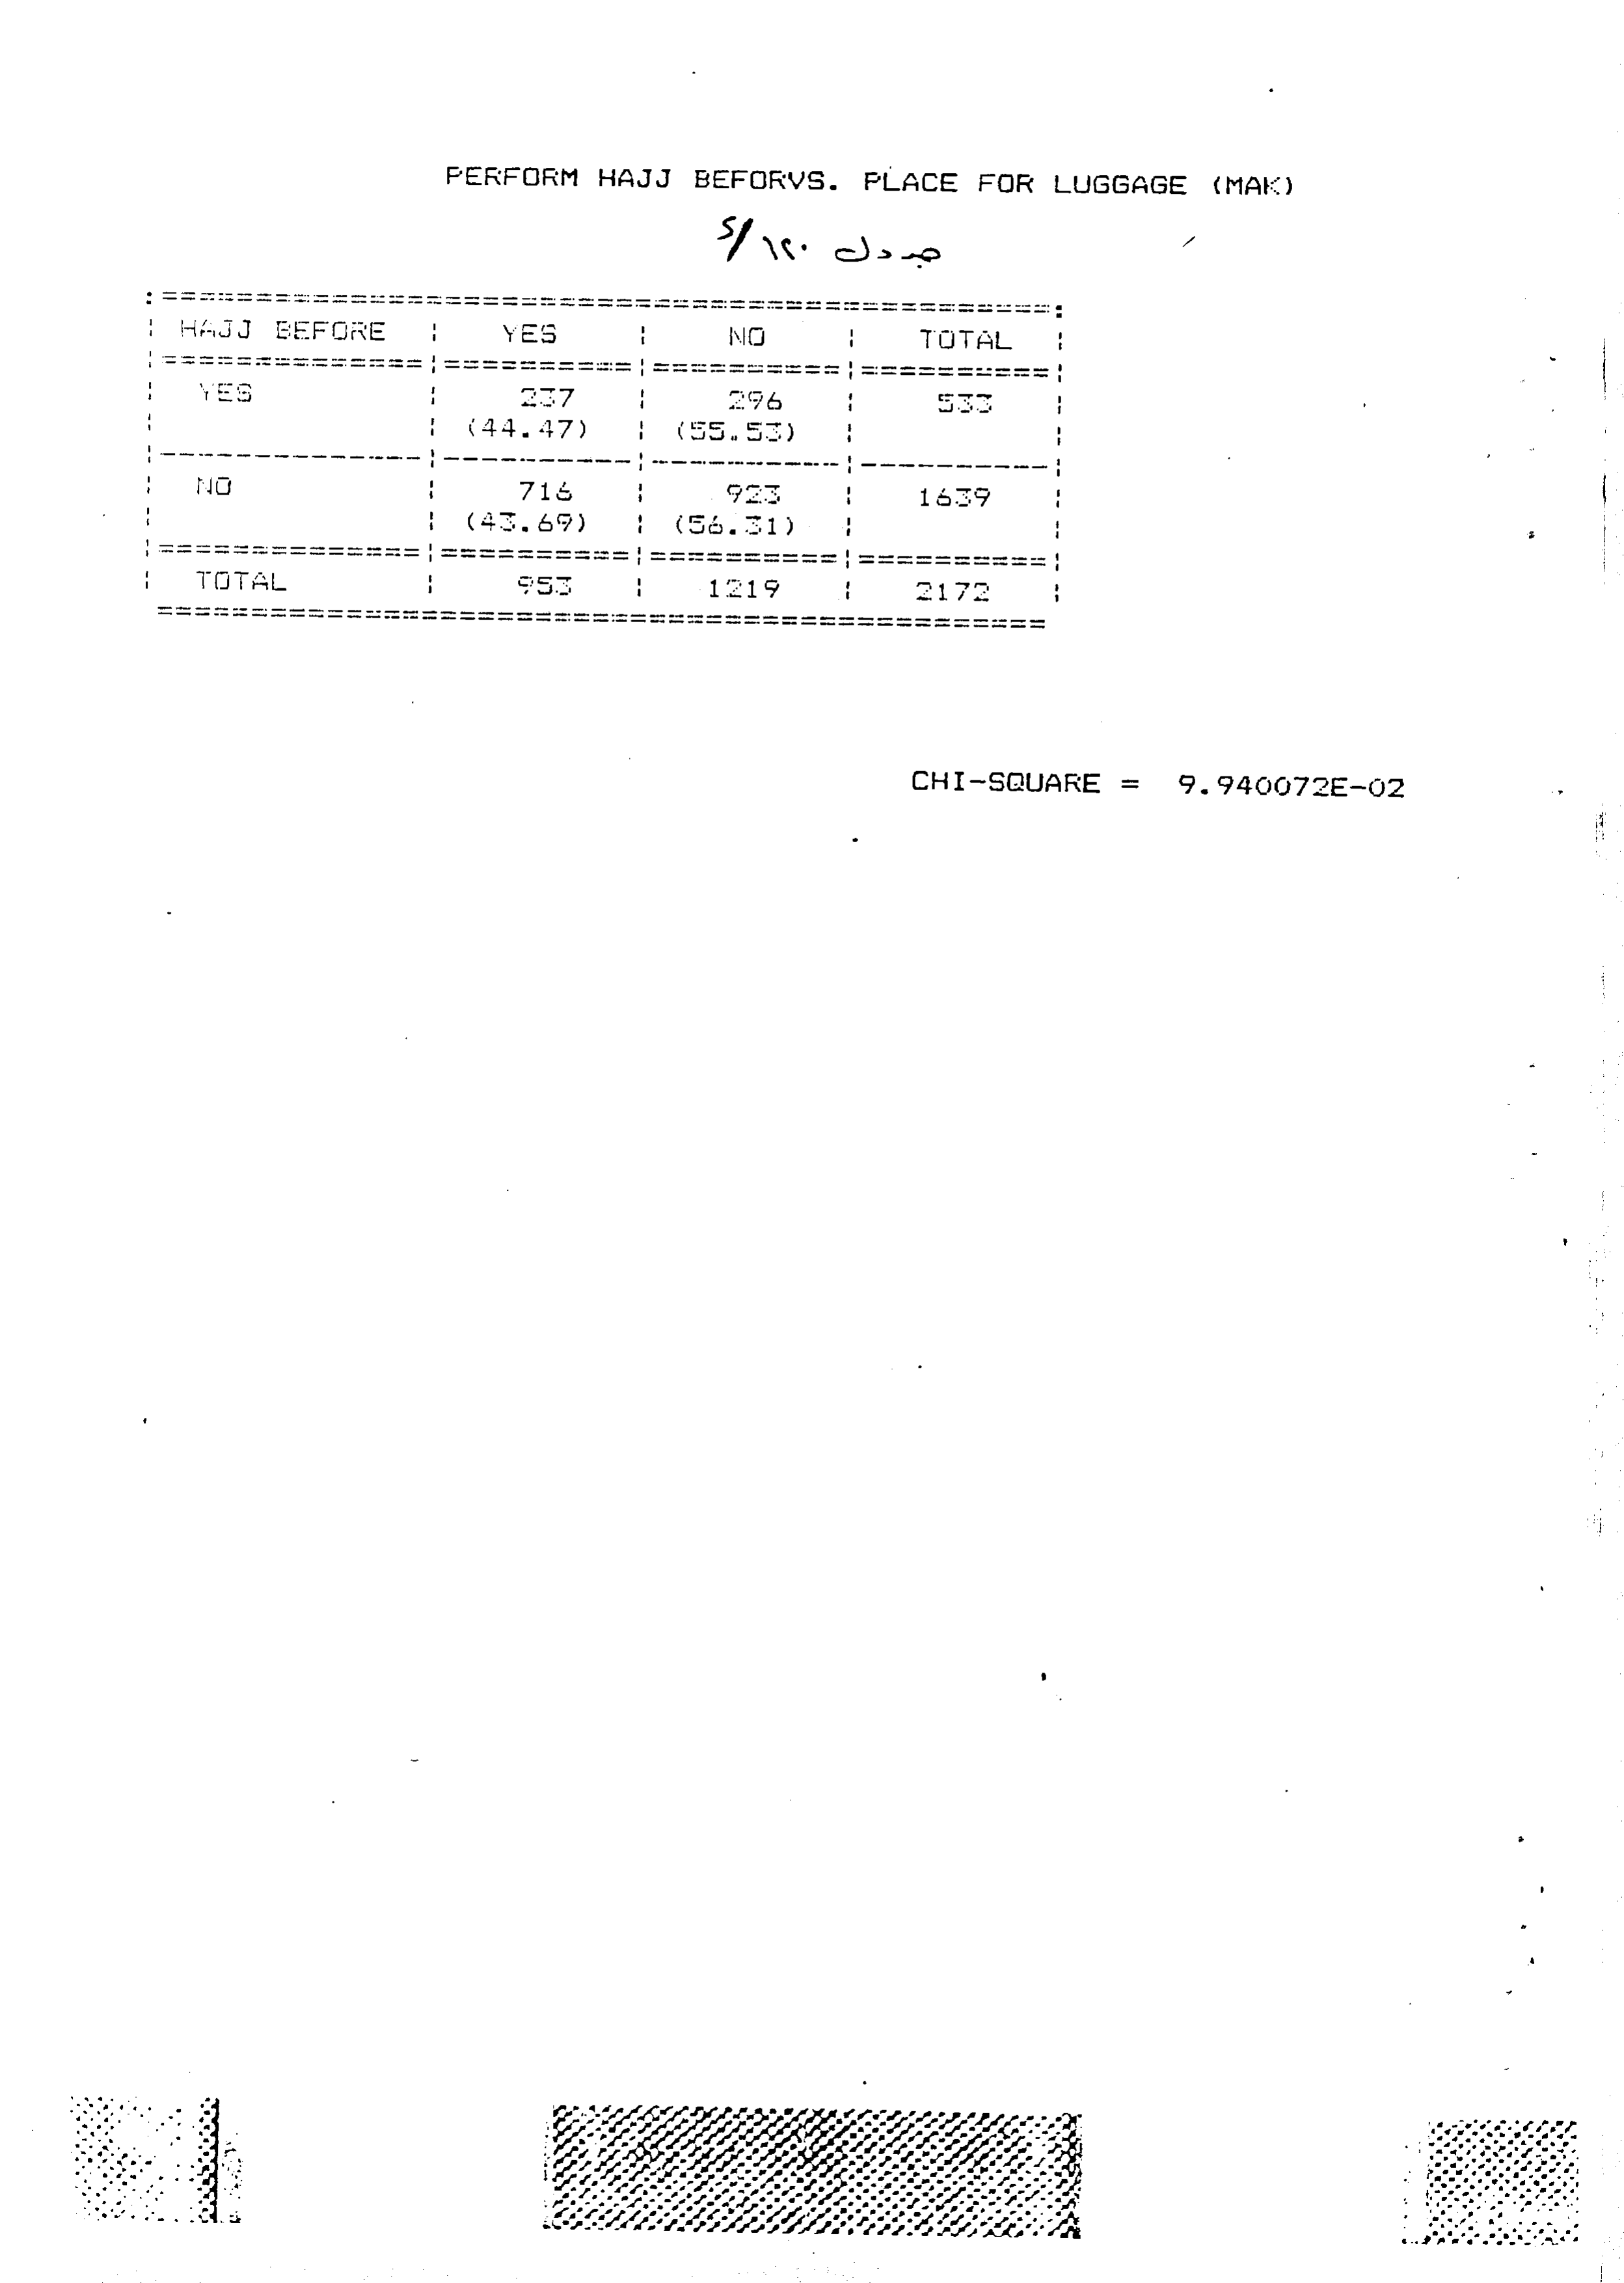 PERFORM HAJJ BEFORVS. PLACE FOR LUGGAGE (MAK)
جدول ١٢٠/٢
HAJJ BEFORE | YES | NO | TOTAL
YES | 237 | 296 | 533
(44.47) | (55.53)
NO | 716 | 923 | 1639
(43.69) | (56.31)
TOTAL | 953 | 1219 | 2172
CHI-SQUARE = 9.940072E-02